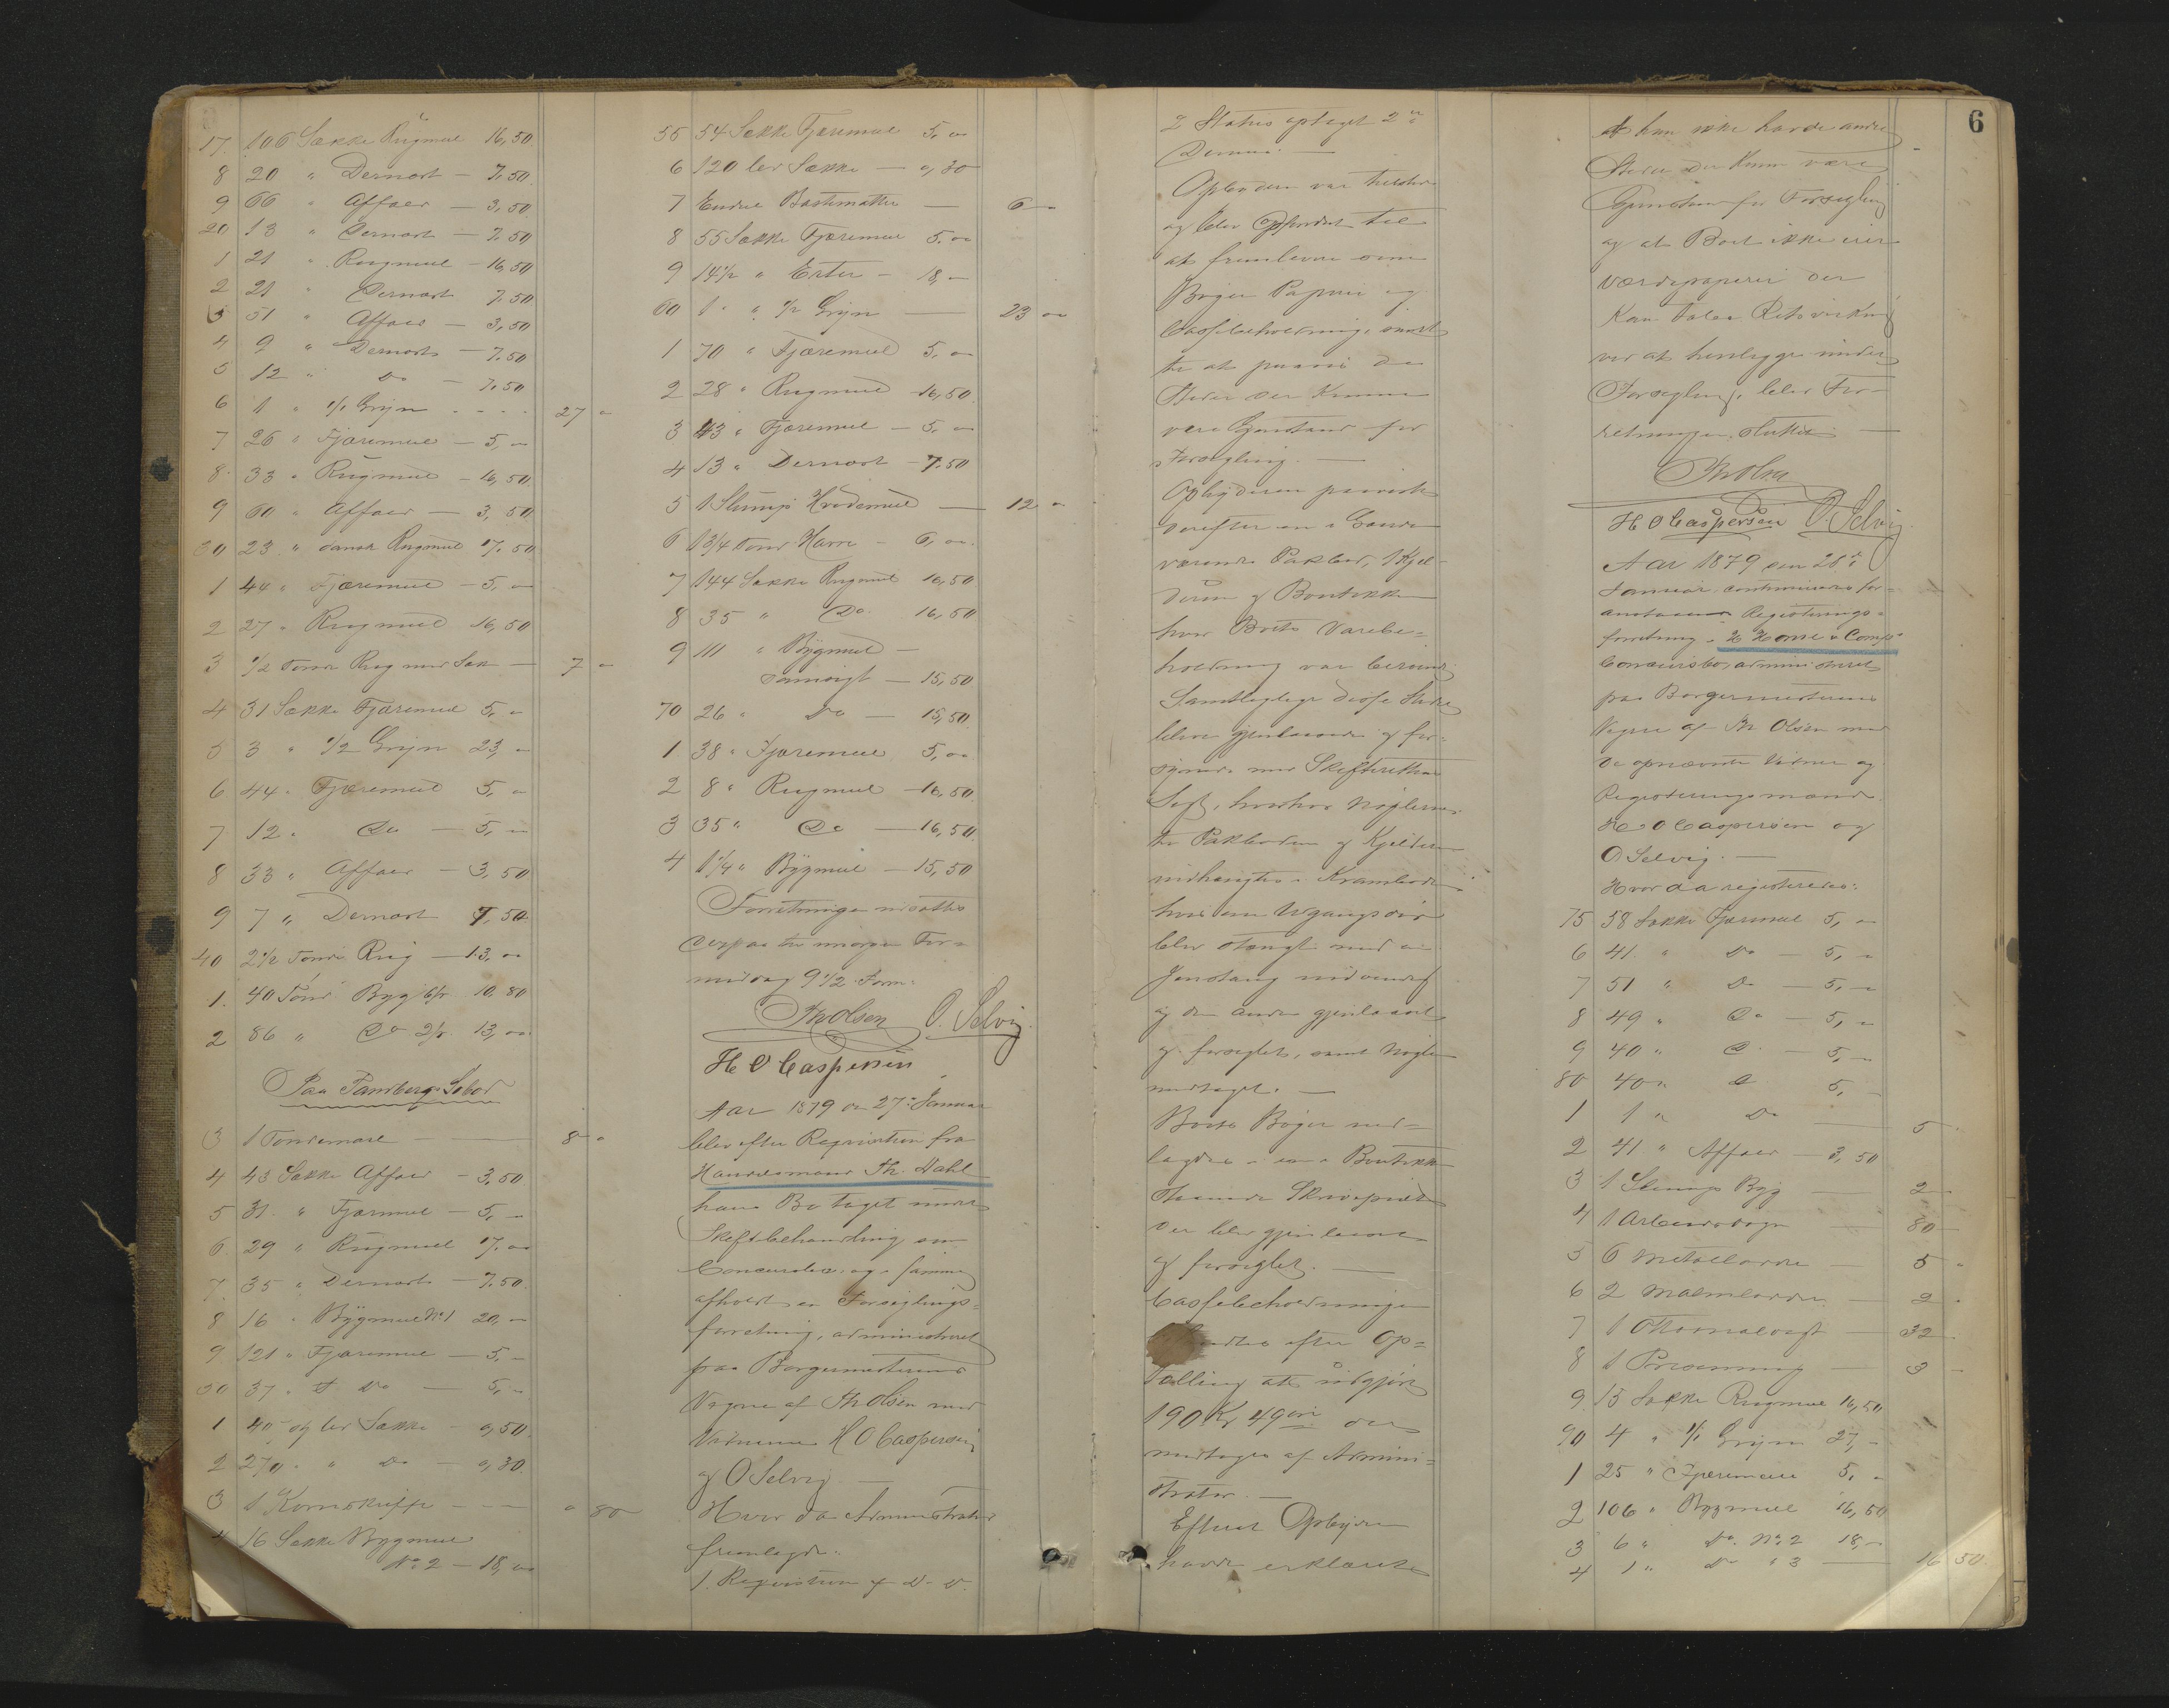 17. 106 Sække Rugmel 16,50
8 20 " Dernart — 7.50
9 66 " Affaer — 3,50
20 13 " Dernart — 7.50
1 21 " Rugmel — 16,50
2 21 " Dernart 7.50
3 51 " Affaer — 3,50
4 9 " Dernart — 7.50
5 12 " Do — 7.50
6 1 " 1/1 Gryn - - - - 27 "
7 26 " Fjæremel — 5, "
8. 33 " Rugmel — 16,50
9 60 " Affaer — 3,50
30 23 " dansk Rugmel 17.50
1 44 " Fjæremel — 5, "
2 27 " Rugmel 16,50
3 1/2 Tønde Rug med Sæk — 7 "
4 31 Sække Fjæremel 5, "
5 3 " 1/2 Gryn 23, "
6 44 " Fjæremel 5, "
7 12 " Do — 5, "
8 33 " Affaer — 3,50
9 7 " Dernart 7,50
40 2 1/2 Tønde Rug — 13, "
1. 40 Tønd Byg 6/r 10,80
2 86 " Do 2/r 13, "
Paa Sandbergs Søbod
3 1 Tøndemaal — 8 "
4 43 Sække Affaer — 3,50
5 31 " Fjæremel — 5, "
6 29 " Rugmel 17. "
7. 35 " Dernart — 7.50
8 16 " Bygmel No 1 20, "
9 121 " Fjæremel — 5, "
50 37 " Do — 5, "
1 40 Sække 0,50
2 270 " Do — 0,30
3 1 Kornskuffe - - - " 80
4 16 Sække Bygmel
No 2 — 18, "
55 54 Sække Fjæremel 5, "
6 120 ler Sække — 0,30
7 Endel Bastmatter — 6 "
8 55 Sække Fjæremel 5. "
9 14 1/2 " Erter — 18, "
60 1 " 1/2 Gryn — 23 "
1 70 " Fjæremel 5, "
2 28 " Rugmel 16,50
3 43 " Fjæremel — 5, "
4 13 " Dernart — 7.50
5 1 Slump Hvedemel — 12 "
6 13/4 Tønd Havre — 6, "
7 144 Sække Rugmel 16,50
8 35 " Do 16,50
9 111 " Bygmel —
— 15,50
70 26 " Do — 15,50
1 38 " Fjæremel 5, "
2 8 " Rugmel — 16,50
3 35 " Do — 16,50
4 1 1/4 " Bygmel — 15,50
Forretningen udsattes
derpaa til imorgen For-
middag 9 1/2 Form:
Th Olsen O. Selvig
H O Caspersen
Aar 1879 den 27de Januar
blev efter Requisition fra
Handelsmand Th. Dahl
hans Bo taget under
Skiftebehandling som
Concursbo og i samme
afholdt en Forseglings-
forretning, administreret
paa Borgermesterens
Vegne af Th Olsen med
Vidnerne H O Caspersen
og O Selvig. —
Hvor da Administrator
fremlagde:
1. Requisition af D. D.
2 Status optaget
Denne. —
Opbyderen var tilstede
og blev opfordret til
at fremlevere sine
Bøger Papirer og
Cassebeholdning, samt
til at paavise de
Steder der kunne
være Gjenstand for
Forsegling. —
Opbyderen paaviste
derefter en i Gaarden
værende Pakbod, 1 Kjel-
der og Boutikken
hvor Boets Varebe-
holdning var beroende
Samtlige disse Steder
bleve gjenlaasede og for-
synede med Skifterettens
Segl, hvorhos Nøglerne
til Pakboden og Kjelderen
nedhængtes i Kramboden
hvis ene Udgangsdør
blev stængt med en
Jernstang indvendig
og den anden gjenlaaset
og forseglet, samt Nøglen
medtaget. —
Boets Bøger ned-
lagdes i en i Boutikken
staaende Skrivepult
der blev gjenlaaset
og forseglet. —
Cassebeholdningen
efter Op-
tælling at udgjøre
190 Kr 49 øre der
modtoges af Admini-
strator. —
Efterat Opbyderen
havde erklæret
6
At han ikke havde andre
Steder der kunne være
Gjenstand for Forsegling
og at Boet ikke eier
Værdipapirer der
kan
ved at henlægge under
Forsegling, blev For-
retningen sluttet —
Th Olsen
H O Caspersen O. Selvig
Aar 1879 den 28de
Januar continueredes for-
anstaaende Registrerings-
forretning i & Comp
Concursbo, administreret
paa Borgermesterens
Vegne af Th Olsen med
de opnævnte Vidner og
Registreringsmænd
H O Caspersen og
O Selvig. —
Hvor da registreredes:
75 58 Sække Fjæremel 5, "
6 41 " Do — 5, "
7 51 " Do — 5, "
8 49 " Do — 5, "
9 40 " Do — 5, "
80 40 " Do 5, "
1 1 " Do — 5
2 41 " Affaer — 3,50
3 1 Slump Byg — 2 "
4 1 Arbeidsvogn — 80 "
5 6 — 5 "
6 2 — 2 "
7 1 — 32
8 1 Presenning — 3 "
9. 15 Sække Rugmel 16,50
90 4 " 1/1 Gryn 27, "
1 25 " Fjæremel 5, "
2 106 " Bygmel 16,50
3 6 " Do. No 2 18, "
4 1 " Do " 3 — 16 50